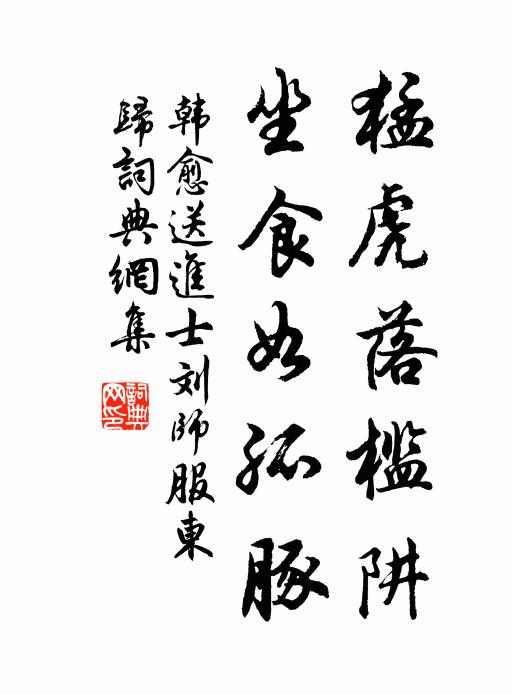 猛虎落檻阱
坐食如孤豚
韩愈送進士刘師服東
歸詞典網集
詞典網印